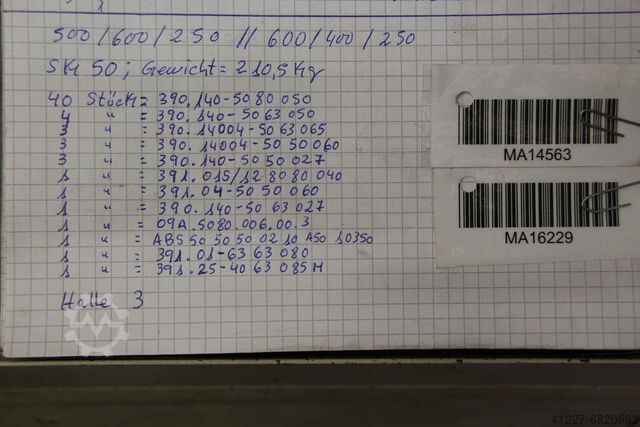 500/600/250 // 600/400/250
SK 50; Gewicht= 210,5Kg
40 Stück= 390.140-5080 050
4 " = 390.140-5063 050
3 " = 390.14004-5063065
3 " = 390.14004-5050060
3 " = 390.140-5050 027
1 " = 391.015/128080 040
1 " = 391.04-5050 060
1 " = 390.140-5063027
1 " = 09A.5080.006.00.3
1 " = ABS50 50 50 02 10 A50 10350
1 " = 391.01-6363 080
1 " = 391.25-4063 085M
Halle 3
MA14563
MA16229
41227-6820693